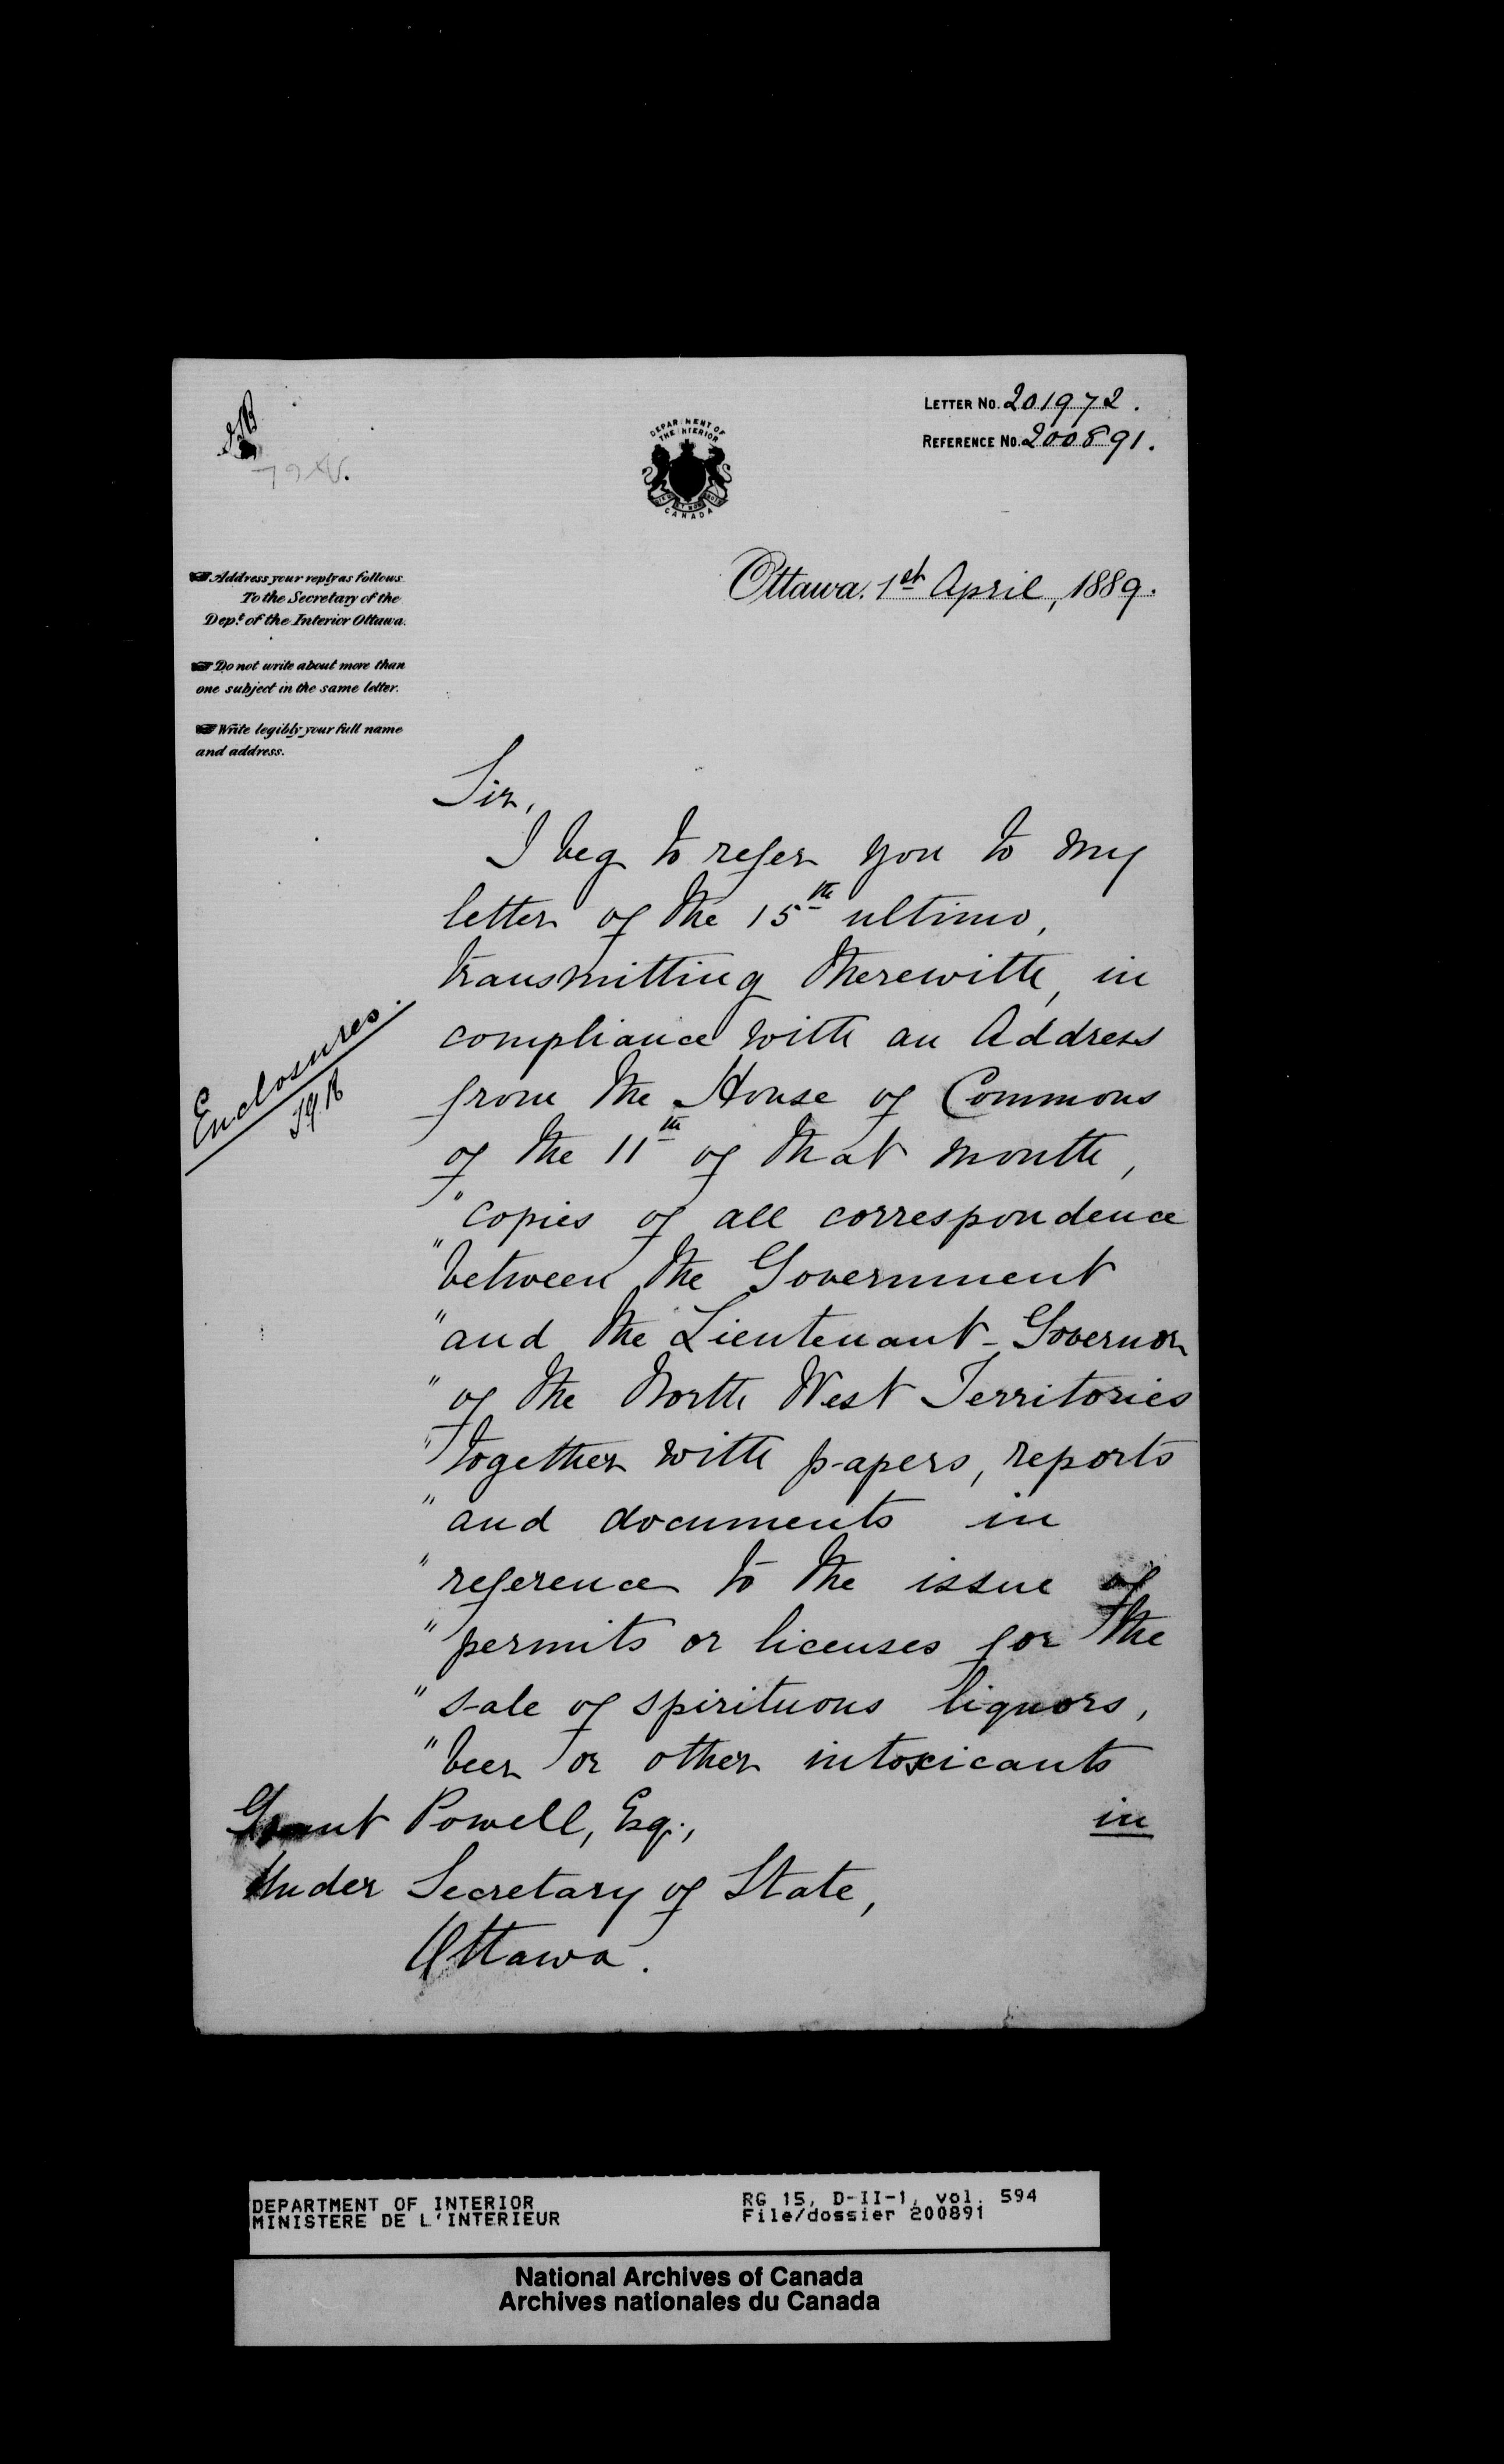 LETTER No. 201972.
REFERENCE No. 200891.
DEPARTMENT OF
THE INTERIOR
CANADA
Address your reply as follows
To the Secretary of the
Dept. of the Interior Ottawa.
Do not write about more than
one subject in the same letter.
Write legibly your full name
and address.
Ottawa. 1st April, 1889.
Enclosures.
Sir,
I beg to refer you to my
letter of the 15th ultimo,
transmitting therewith, in
compliance with an Address
from the House of Commons
of the 11th of that month,
"copies of all correspondence
"between the Government
"and the Lieutenant-Governor
"of the North West Territories
"together with papers, reports
"and documents in
"reference to the issue of
"permits or licenses for the
"sale of spirituous liquors,
"beer or other intoxicants
in
Grant Powell, Esq.,
Under Secretary of State,
Ottawa.
DEPARTMENT OF INTERIOR
MINISTERE DE L'INTERIEUR
RG 15, D-II-1, vol. 594
File/dossier 200891
National Archives of Canada
Archives nationales du Canada